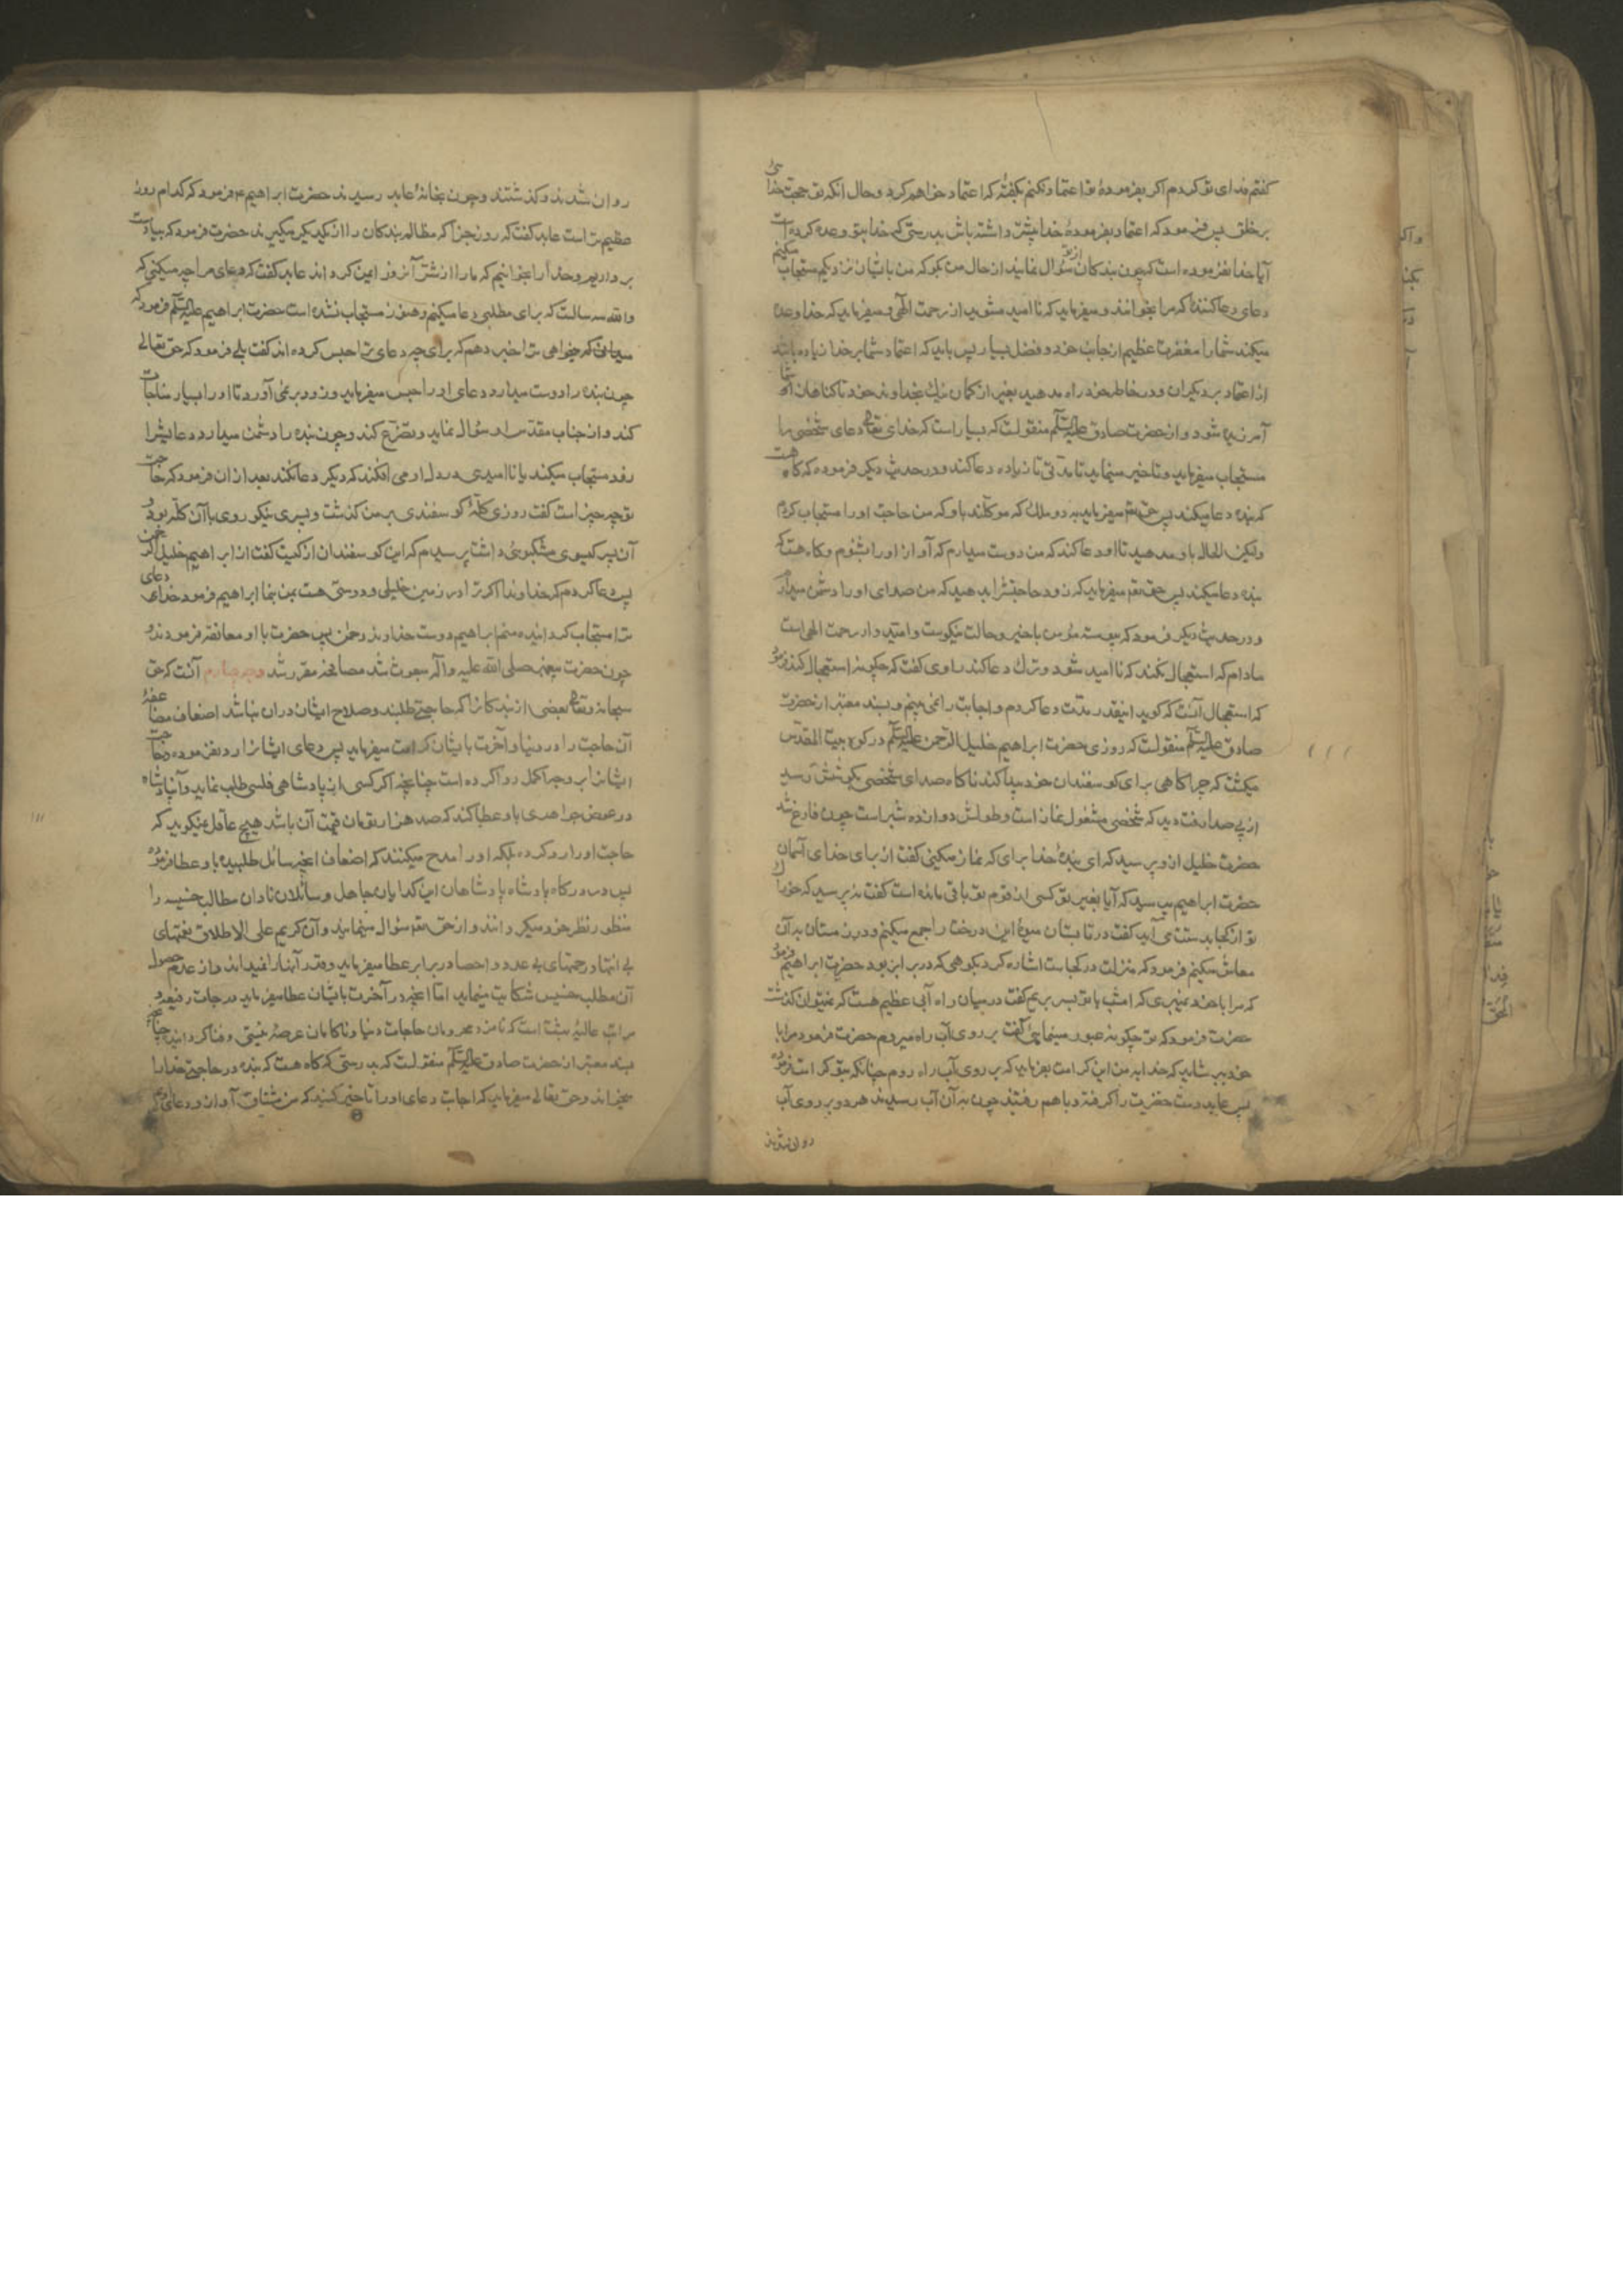 کفتم فدای تو کردم اکر بفرمودهٔ تو اعتماد نکنم بکفتهٔ که اعتماد خواهم کرد و حال آنکه تو حجت خدائی
بر خلق پس فرمود که اعتماد بفرمودهٔ خدا بیشتر داشته باش بدرستی که خدا بتو وعده کرده است
آیا خدا نفرموده است که چون بندکان از تو سؤال نمایند از حال من بکو که من بایشان نزدیکم مستجاب میکنم
دعای دعا کننده که مرا بخوانند و میفرماید که ناامید مشوید از رحمت الهی و میفرماید که خدا وعده
میکند شما را مغفرت عظیم از جانب خود و فضل بسیار پس باید که اعتماد شما بر خدا زیاده باشد
از اعتماد بر دیکران و در خاطر خود راه مدهید بغیر از کمان نیک بخداوند خود تا کناهان شما
آمرزیده شود و از حضرت صادق علیه السلام منقولست که بسیار است که خدای تعالی دعای شخصی را
مستجاب میفرماید و تاخیر مینماید تا مدتی تا زیاده دعا کند و در حدیث دیکر فرموده که کاه هست
که بنده دعا میکند پس حق تعم میفرماید به دو ملک که موکلند باو که من حاجت او را مستجاب کردم
ولیکن الحال باو مدهید تا او دعا کند که من دوست میدارم که آواز او را بشنوم و کاه هست که
بنده دعا میکند پس حق تعم میفرماید که زود حاجتش را بدهید که من صدای او را دشمن میدارم
و در حدیث دیکر فرمود که پیوسته مؤمن با خیر و حالت نیکوست و امیدوار رحمت الهی است
مادام که استعجال نکند که ناامید شود و ترک دعا کند راوی کفت که چکونه استعجال کند فرمود
که استعجال آنست که کوید اینقدر مدت دعا کردم و اجابت را نمی بینم و بسند معتبر از حضرت
صادق علیه السلام منقولست که روزی حضرت ابراهیم خلیل الرحمن علیه السلام در کوه بیت المقدس
میکشت که چراکاهی برای کوسفندان خود پیدا کند ناکاه صدای شخصی بکوشش رسید
از پی صدا رفت دید که شخصی مشغول نماز است و طولش دوازده شبر است چون فارغ شد
حضرت خلیل ازو پرسید که ای بندهٔ خدا برای که نماز میکنی کفت از برای خدای آسمان
حضرت ابراهیم پرسید که آیا بغیر تو کسی از قوم تو باقی مانده است کفت نه پرسید که خوراک
تو از کجا بدست می آید کفت در تابستان میوهٔ این درخت را جمع میکنم و در زمستان به آن
معاش میکنم فرمود که منزلت در کجاست اشاره کرد بکوهی که در برابر بود حضرت ابراهیم فرمود
که مرا با خود نمیبری که امشب با تو بسر بریم کفت در میان راه آبی عظیم هست که نمیتوان کذشت
حضرت فرمود که تو چکونه عبور مینمایی کفت بر روی آب راه میروم حضرت فرمود مرا با
خود ببر شاید که خدا بمن این کرامت بفرماید که بر روی آب راه روم چنانکه بتو کرامت فرموده
پس عابد دست حضرت را کرفته و با هم رفتند چون به آن آب رسیدند هر دو بر روی آب
روان شدند
روان شدند و کذشتند و چون بخانهٔ عابد رسیدند حضرت ابراهیم ع فرمود که کدام روز
عظیم تر است عابد کفت که روز جزا که مظالم بندکان را از یکدیکر میکیرند حضرت فرمود که بیا دست
برداریم و خدا را بخوانیم که ما را از شر آنروز ایمن کرداند عابد کفت که دعای مرا چه میکنی که
والله سه سالست که برای مطلبی دعا میکنم و هنوز مستجاب نشده است حضرت ابراهیم علیه السلام فرمود که
میخواهی ترا خبر دهم که برای چه دعای ترا حبس کرده اند کفت بلی فرمود که حق تعالی
چون بنده را دوست میدارد دعای او را حبس میفرماید و زود بر نمی آورد تا او را بسیار مناجات
کند و از جناب مقدس او سؤال نماید و تضرع کند و چون بنده را دشمن میدارد دعایش را
زود مستجاب میکند یا ناامیدی در دل او می افکند که دیکر دعا نکند بعد از ان فرمود که حاجت
تو چه چیز است کفت روزی کلهٔ کوسفندی بر من کذشت و پسری نیکو روی با آن کله بود و
آن پسر کیسوی مشکبوئی داشت پرسیدم که این کوسفندان از کیست کفت از ابراهیم خلیل الرحمن
پس دعا کردم که خداوندا اکر ترا در زمین خلیلی و دوستی هست بمن بنما ابراهیم فرمود خدا دعای
ترا مستجاب کردانیده منم ابراهیم دوست خداوند رحمن پس حضرت با او معانقه فرمودند و
چون حضرت پیغمبر صلی الله علیه و آله مبعوث شد مصافحه مقرر شد وجه چهارم آنست که حق
سبحانه و تعالی بعضی از بندکان را که حاجتی طلبند و صلاح ایشان در ان نباشد اضعاف مضاعفهٔ
آن حاجت را در دنیا و آخرت بایشان کرامت میفرماید پس دعای ایشان را رد نفرموده و حاجت
ایشان را بر وجه اکمل روا کرده است چنانچه اکر کسی از پادشاهی فلسی طلب نماید و آن پادشاه
در عوض جواهری باو عطا کند که صد هزار تومان قیمت آن باشد هیچ عاقل نمیکوید که
حاجت او را رد کرده بلکه او را مدح میکنند که اضعاف آنچه سائل طلبیده باو عطا فرموده
پس در درکاه پادشاه پادشاهان این کدایان جاهل و سائلان نادان مطالب خسیسه را
منظور نظر خود میکردانند و از حق تعم سؤال مینمایند و آن کریم علی الاطلاق نعمتهای
بی انتها و رحمتهای بی عدد و احصا در برابر عطا میفرماید و قدر آنها را نمیدانند و از عدم حصول
آن مطلب خسیس شکایت مینمایند اما آنچه در آخرت بایشان عطا میفرماید درجات رفیعه و
مراتب عالیهٔ بهشت است که نامزد محرومان حاجات دنیا و ناکامان عرصهٔ نیستی و فنا کردانیده چنانچه
بسند معتبر از حضرت صادق علیه السلام منقولست که بدرستی که کاه هست که بنده در حاجتی خدا را
میخواند و حق تعالی میفرماید که اجابت دعای او را تاخیر کنید که من مشتاق آواز و دعای